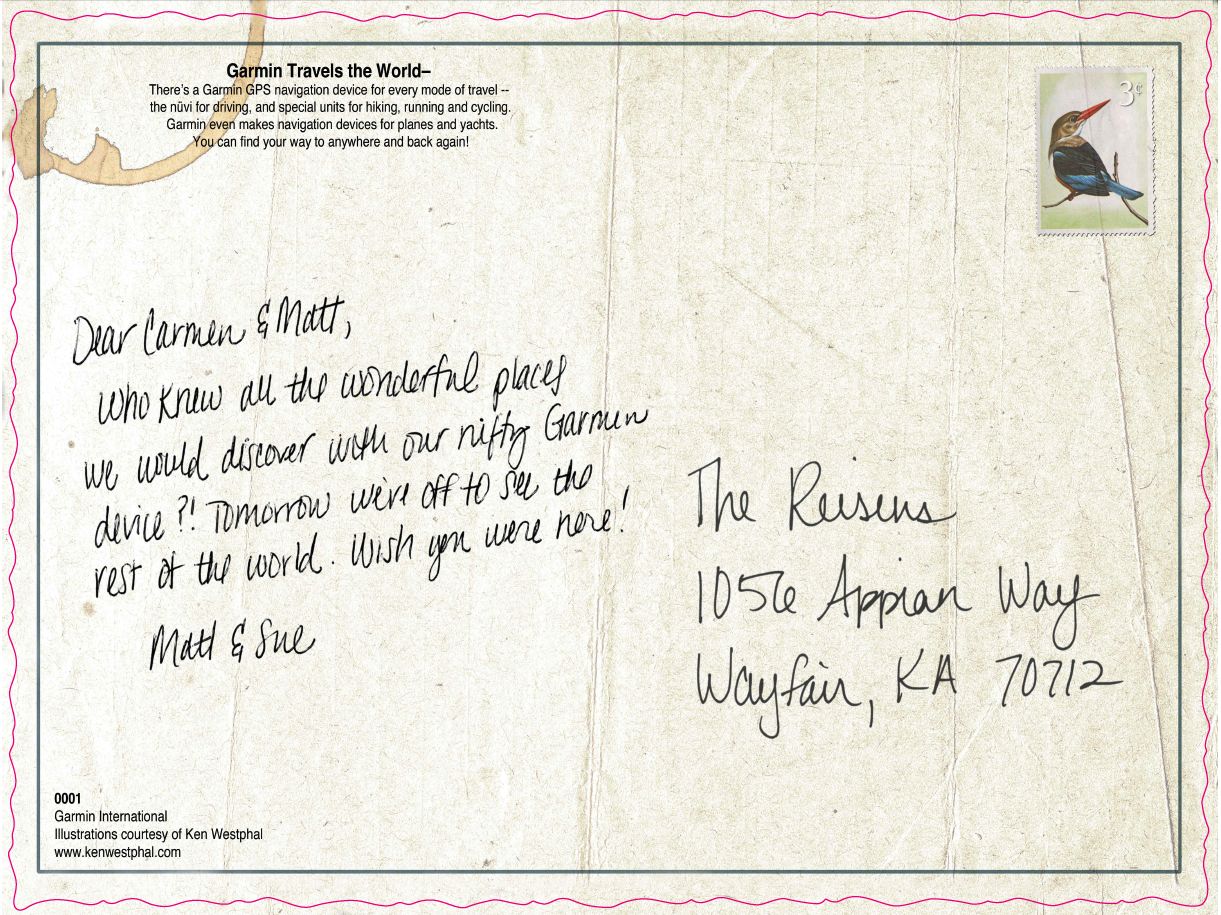 Garmin Travels the World–
There's a Garmin GPS navigation device for every mode of travel --
the nüvi for driving, and special units for hiking, running and cycling.
Garmin even makes navigation devices for planes and yachts.
You can find your way to anywhere and back again!
3¢
Dear Carmen & Matt,
Who knew all the wonderful places
we would discover with our nifty Garmen
device?! Tomorrow we're off to see the
rest of the world. Wish you were here!
Matt & Sue
The Reisens
1056 Appian Way
Wayfair, KA 70712
0001
Garmin International
Illustrations courtesy of Ken Westphal
www.kenwestphal.com